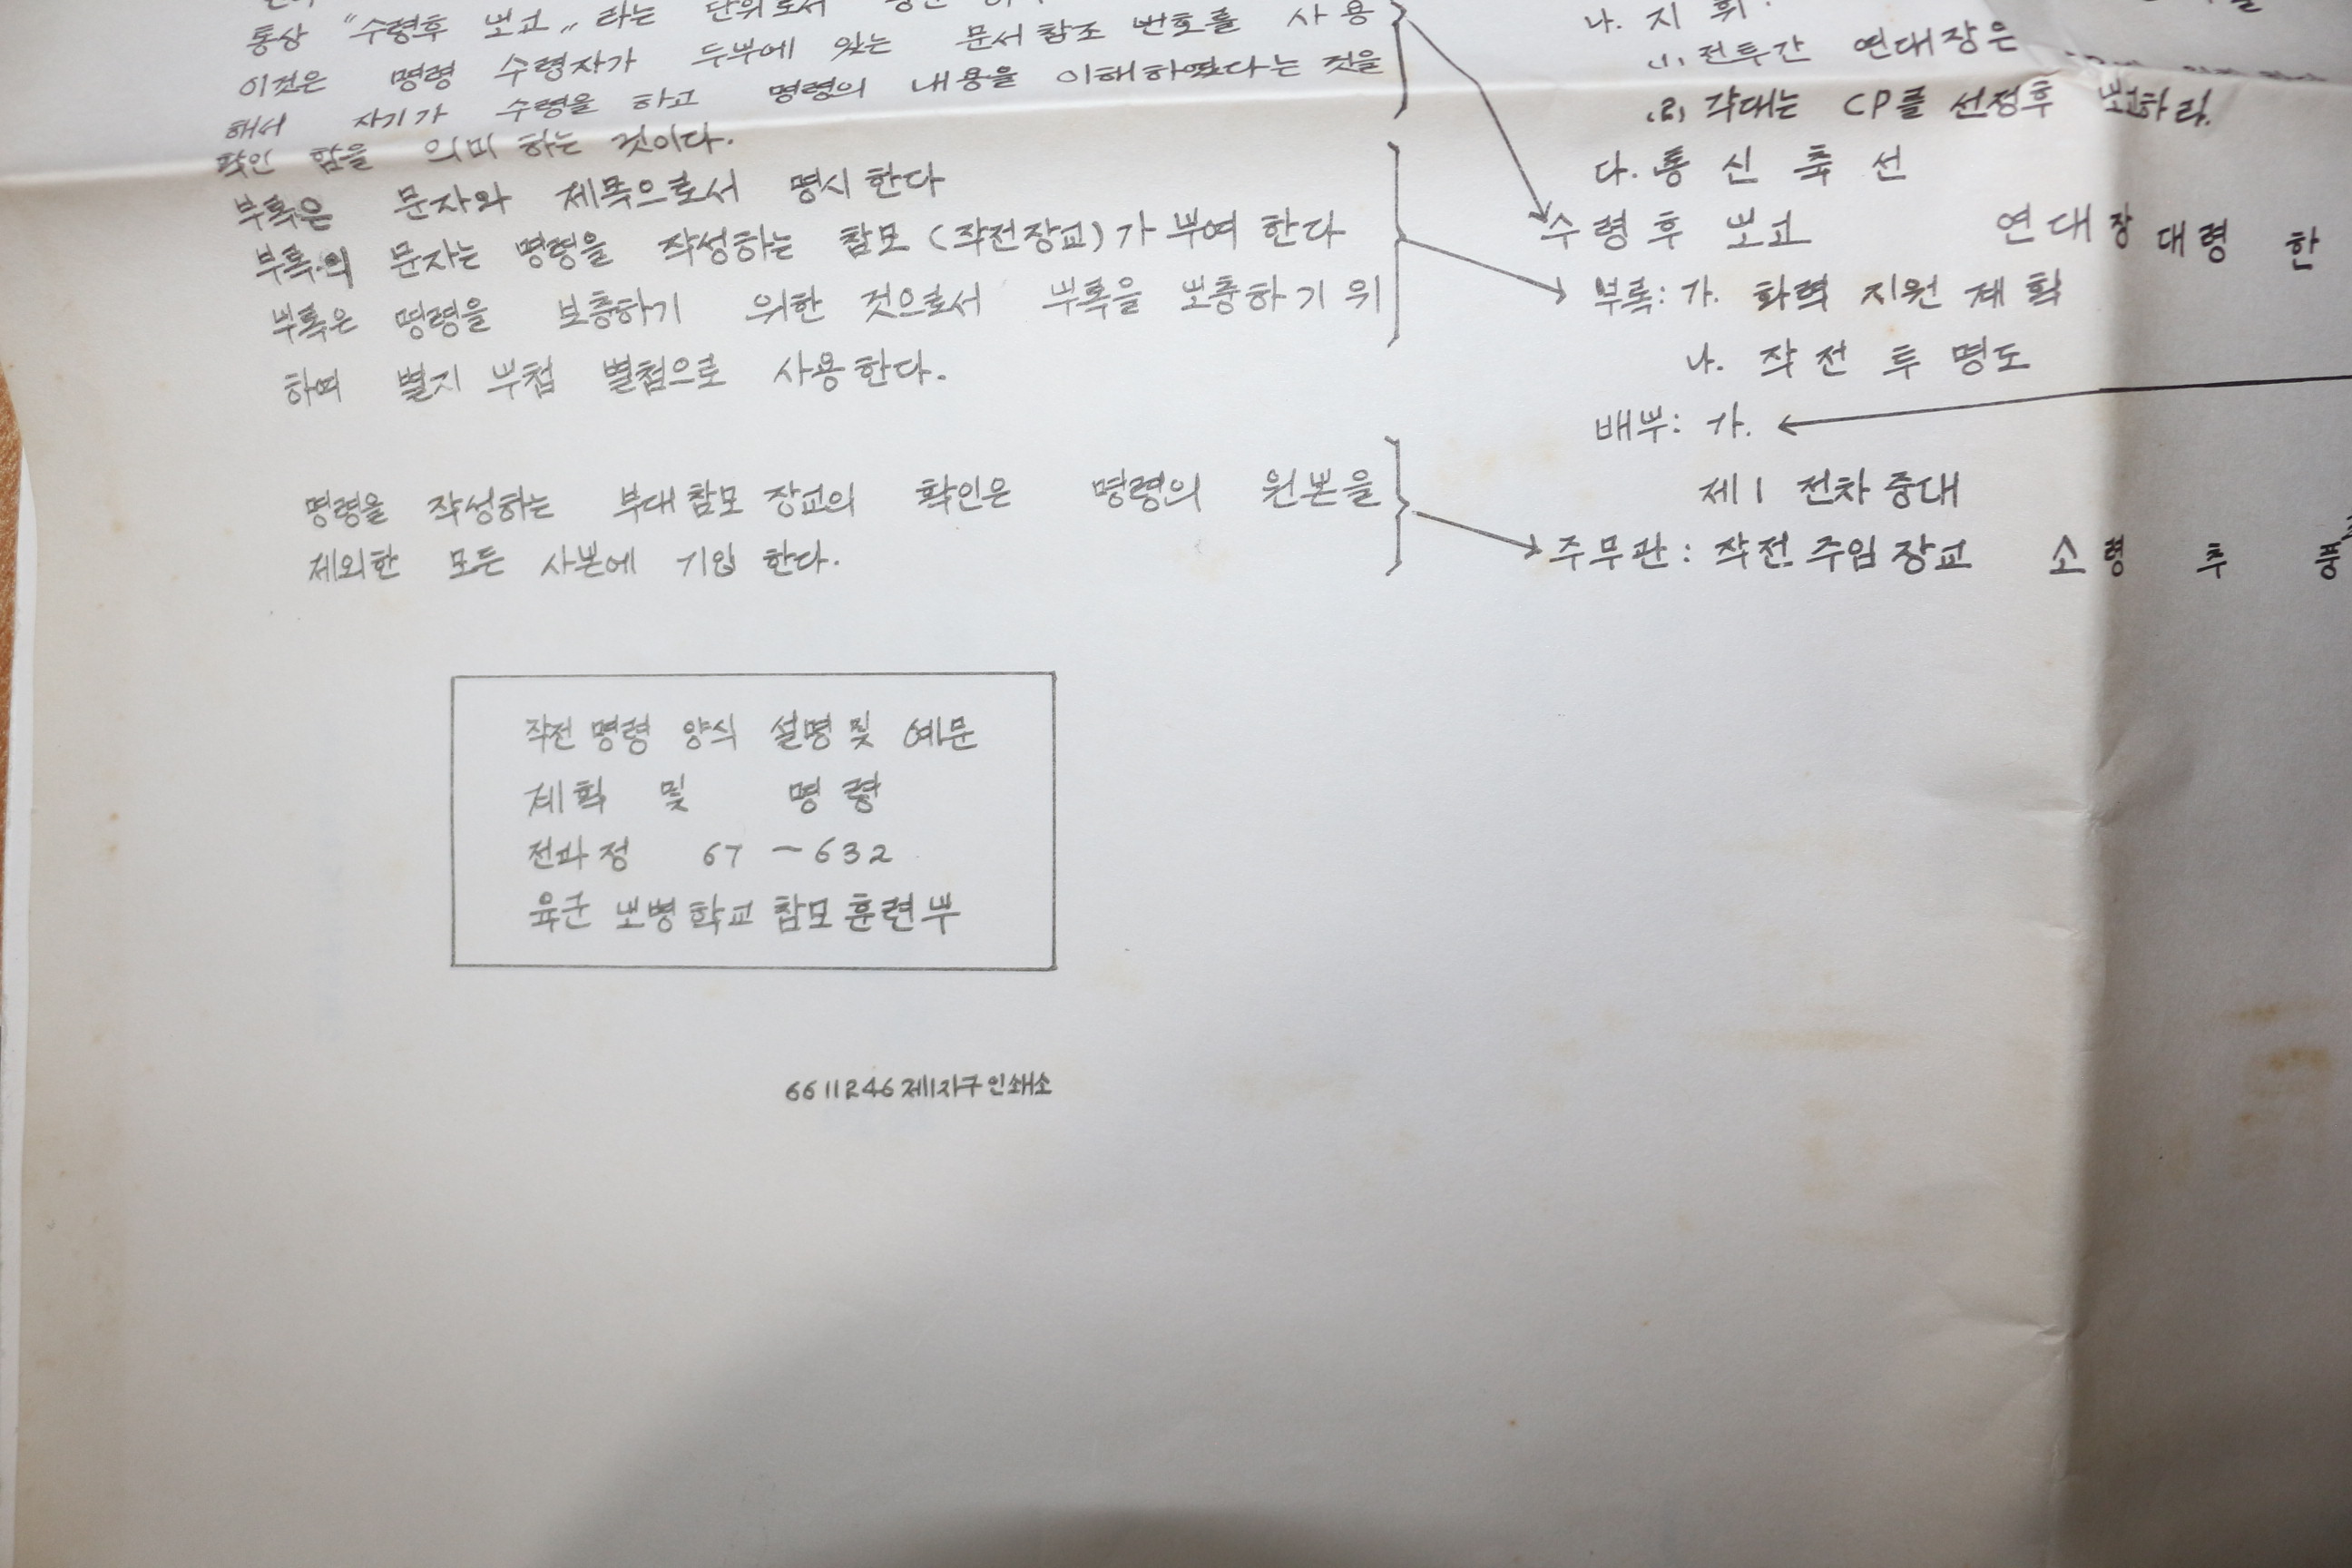 통상 "수령후 보고" 라는 단위로서
이것은 명령 수령자가 두부에 있는 문서 참조 번호를 사용
해서 자기가 수령을 하고 명령의 내용을 이해하였다는 것을
확인 함을 의미 하는 것이다.
부록은 문자와 제목으로서 명시 한다
부록의 문자는 명령을 작성하는 참모 (작전장교)가 부여 한다
부록은 명령을 보충하기 위한 것으로서 부록을 보충하기 위
하여 별지 부첩 별첨으로 사용 한다.
명령을 작성하는 부대 참모 장교의 확인은 명령의 원본을
제외한 모든 사본에 기입 한다.
나. 지 휘
(1) 전투간 연대장은
(2) 각대는 CP를 선정후 보고하라.
다. 통 신 축 선
수 령 후 보 고 연 대 장 대 령 한
부록: 가. 화력 지원 계획
나. 작 전 투 명도
배부: 가.
제1 전차 중대
주무관: 작전 주임 장교 소 령 추
작전 명령 양식 설명 및 예문
계획 및 명령
전과정 67-632
육군 보병 학교 참모 훈련부
6611246 제1지구 인쇄소